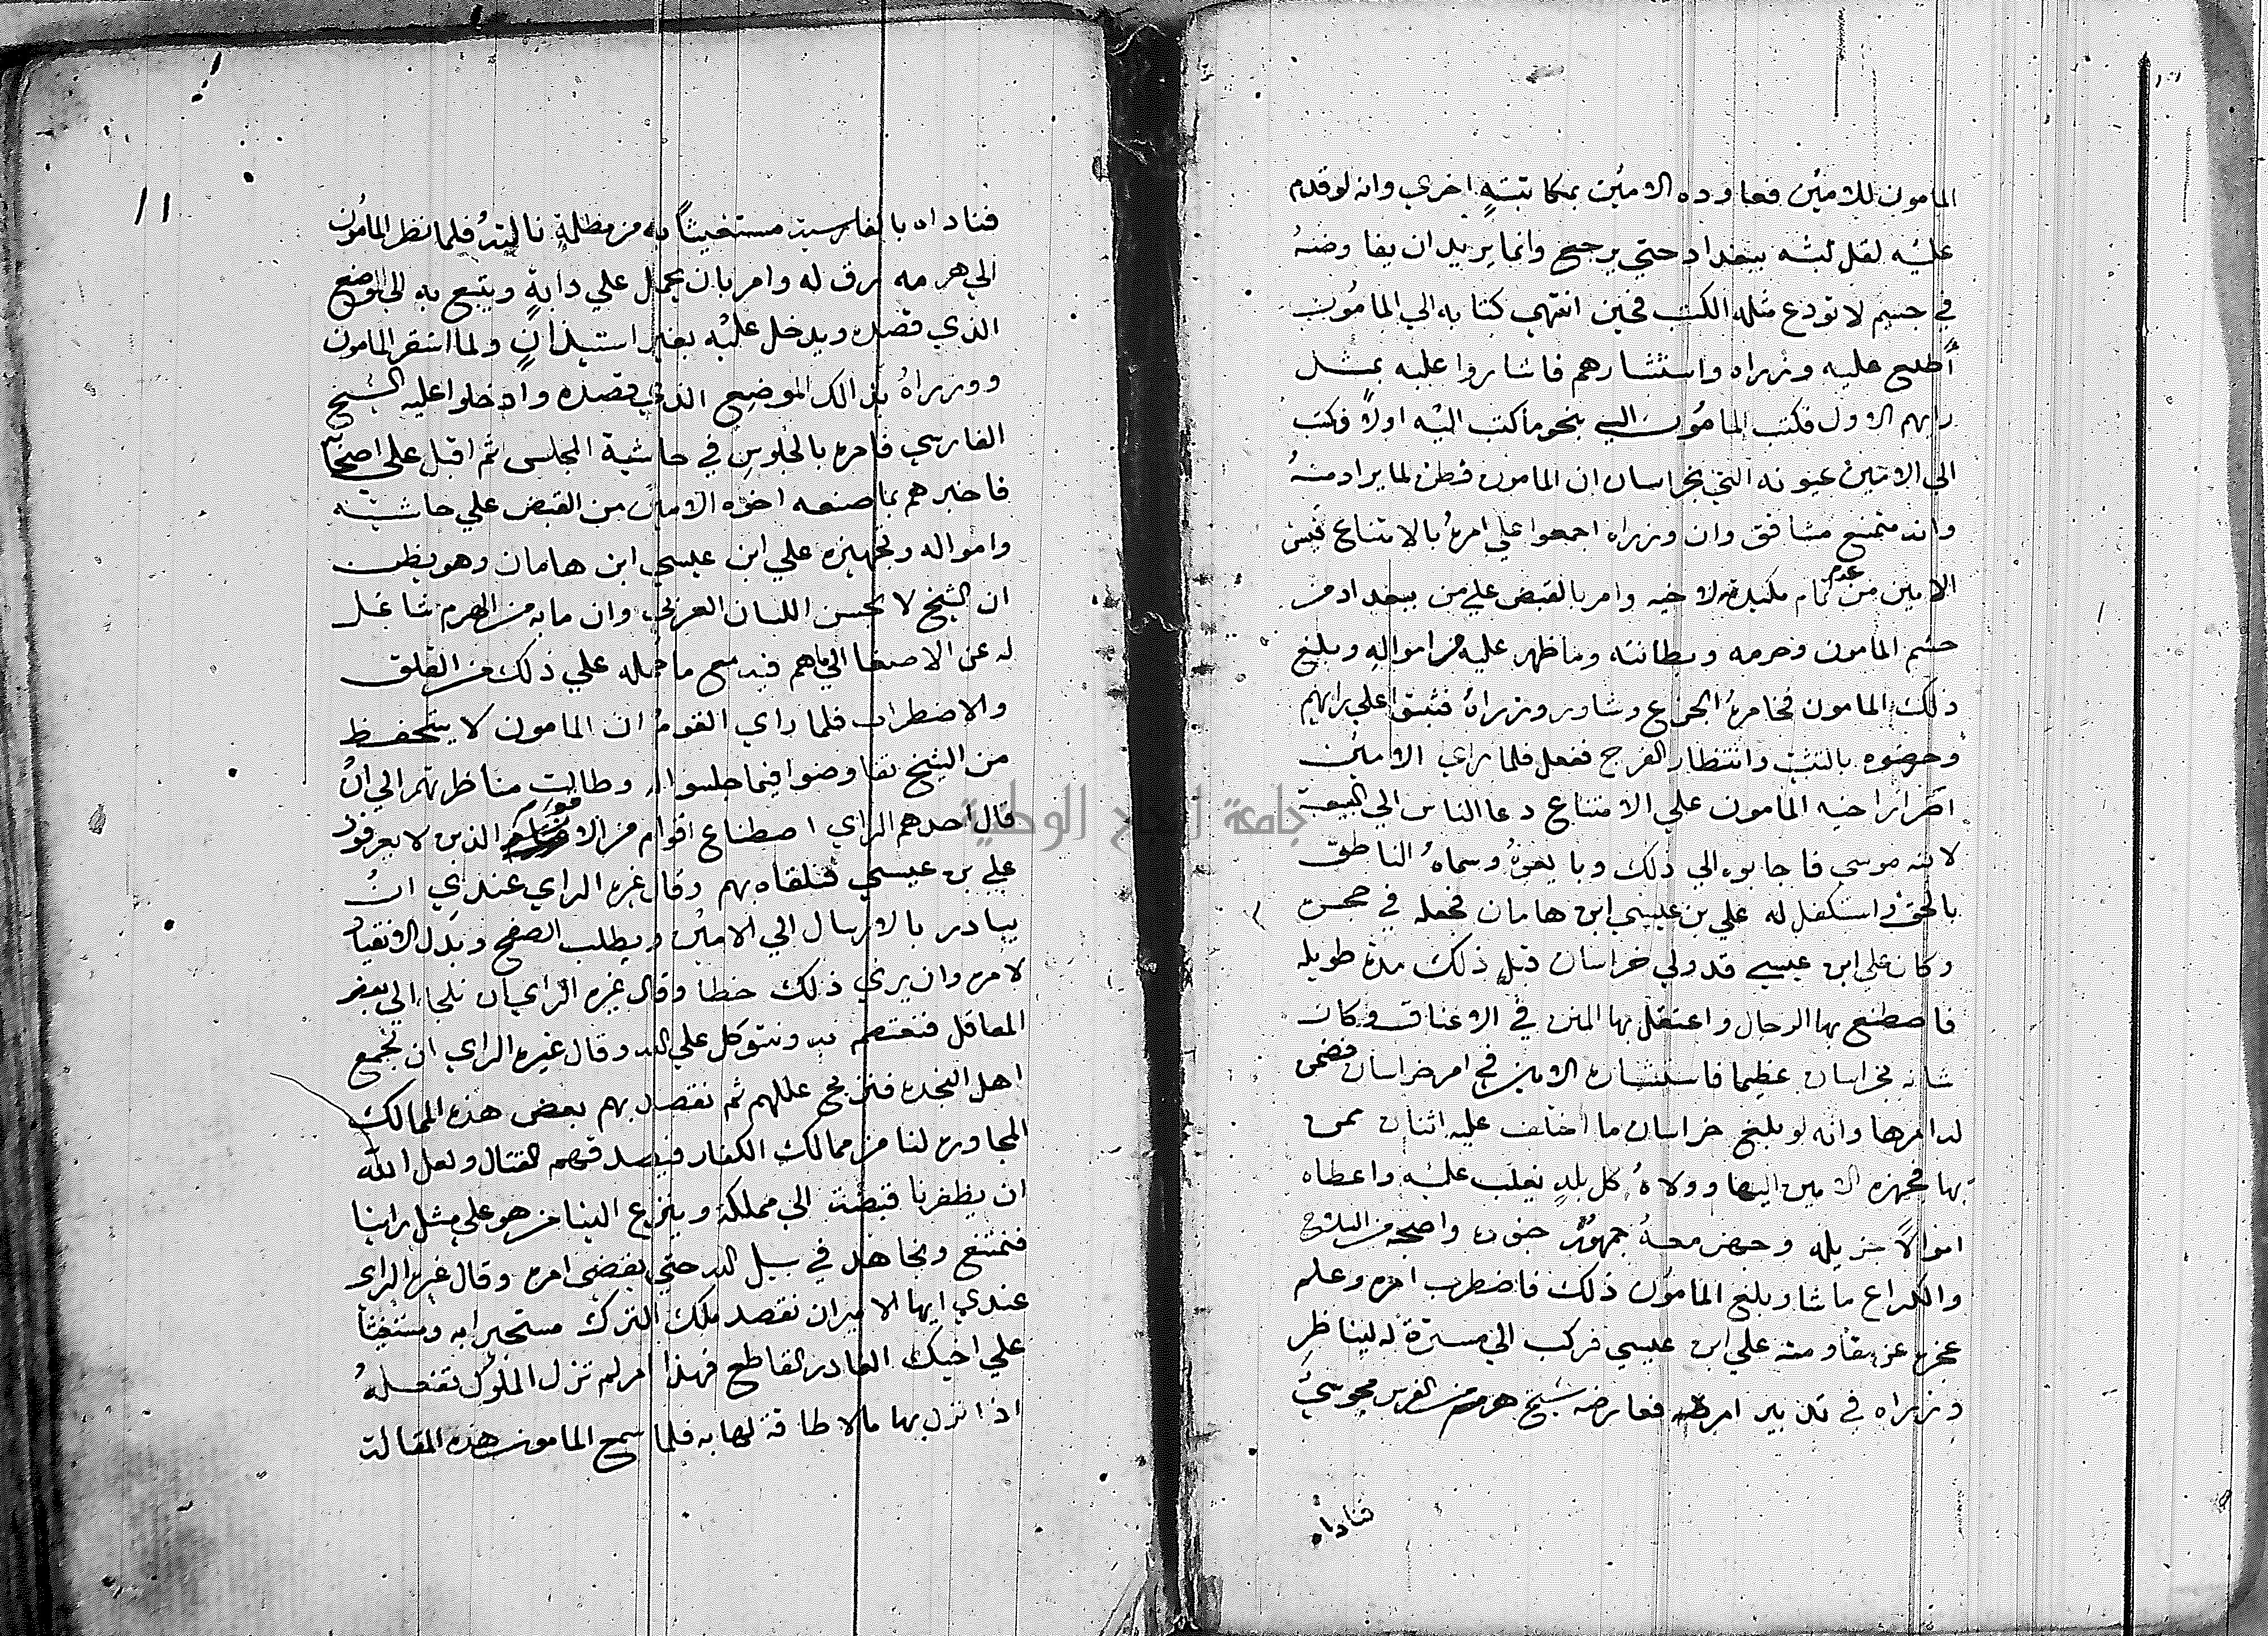 المامون للامين فعاوده الامين بمكاتبتهٍ اخري وانه لو قدم
عليه لقل لبثه ببغداد حتي يرجع وانما يريد ان يفاوضهُ
في جسيم لا تودع مثله الكتب فحين انتهي كتابه الي المامون
أطلع عليه وزراه واستشارهم فاشاروا عليه بمثل
رايهم الاول فكتب المامون اليه بنحو ما كتب اليه اولاً فكتب
الي الامين عيونه التي بخراسان ان المامون فطن لما يراد منهُ
وانه متمنع مشاقق وان وزراه اجمعوا علي امرهُ بالامتناع فيئس
الامين من عدم تمام مكيدته لاخيه وامر بالقبض علي من ببغداد من
حشم المامون وحرمه وبطانته وما ظهر عليه من امواله وبلغ
ذلك المامون فخامرهُ الجزع وشاور وزراهُ فثبتوا علي رايهم
وحرضوه بالتثبت وانتظار الفرج ففعل فلما راي الامين
اصرار اخيه المامون علي الامتناع دعا الناس الي البيعة
لابنه موسي فاجابوه الي ذلك وبايعوهُ وسماهُ الناطق
بالحق واستكفل له علي بن عيسي ابن هامان فجعله في حجره
وكان علي ابن عيسي قد ولي خراسان قبل ذلك مدة طويله
فاصطنع بها الرجال واعتقل بها المنن في الاعناق وكان
شانه بخراسان عظيما فاستشاره الامين في امر خراسان فضمن
له امرها وانه لو بلغ خراسان ما اختلف عليه اثنان ممن
بها فجهزه الامين اليها وولاهُ كل بلدٍ يغلب عليه واعطاه
اموالاً جزيله وجهز معهُ جمهور جنوده واصحبه من السلاح
والكراع ما شا وبلغ المامون ذلك فاضطرب امره وعلم
عجزه عن مقاومته علي ابن عيسي فركب الي مستنزة له ليناظر
وزراه في تدبير امره فعارضه شيخ هرم من الفرس مجوسي
فناداه
١١
فناداه بالفارسية مستغيثاً به من مظلمةٍ نالته فلما نظر المامون
الي هرمه رق له وامر بان يحمل علي دابةٍ ويتبع به الي الموضع
الذي قصده ويدخل عليه بغير استيذانٍ ولما استقر المامون
ووزراهُ بذالك الموضع الذي قصده وادخلوا عليه الشيخ
الفارسي فامره بالجلوس في حاشية المجلس ثم اقبل علي اصحابه
فاخبرهم بما صنعه اخوه الامين من القبض علي حاشيته
وامواله وتجهيزه علي ابن عيسي ابن هامان وهو يظن
ان الشيخ لا يحسن اللسان العربي وان ما به من الهرم شاغل
له عن الاصغا الي ما هم فيه مع ما حمله علي ذلك من القلق
والاضطراب فلما راي القومُ ان المامون لا يتحفظ
من الشيخ تفاوضوا فيما جلسوا له وطالت مناظرتهم الي ان
قال احدهم الراي اصطناع اقوام من الذين لا يعرفون
علي بن عيسي فنلقاه بهم وقال غيره الراي عندي ان
يبادر بالارسال الي الامين ويطلب الصفح وبذل الانقياد
لامره وان يري ذلك حظا وقال غيره الراي ان نلجا الي بعض
المعاقل فنعتصم به ونتوكل علي الله وقال غيره الراي ان تجمع
اهل النجده فنزيح عللهم ثم نقصد بهم بعض هذه الممالك
المجاوره لنا من ممالك الكفار فنصدقهم القتال ولعل الله
ان يظفرنا فيضت الي مملكة وينزع الينا من هو علي مثل راينا
فنمتنع ونجاهد في سبيل الله حتي يقضي امره وقال غيره الراي
عندي ايها الامير ان نقصد ملك الترك مستجيرا به ومستغيثا
علي اخيك الغادر القاطع فهذا امر لم تزل الملوك تفعلهُ
اذا نزل بها ما لا طاقة لها به فلما سمع المامون هذه المقالة
جامعة النجاح الوطنية